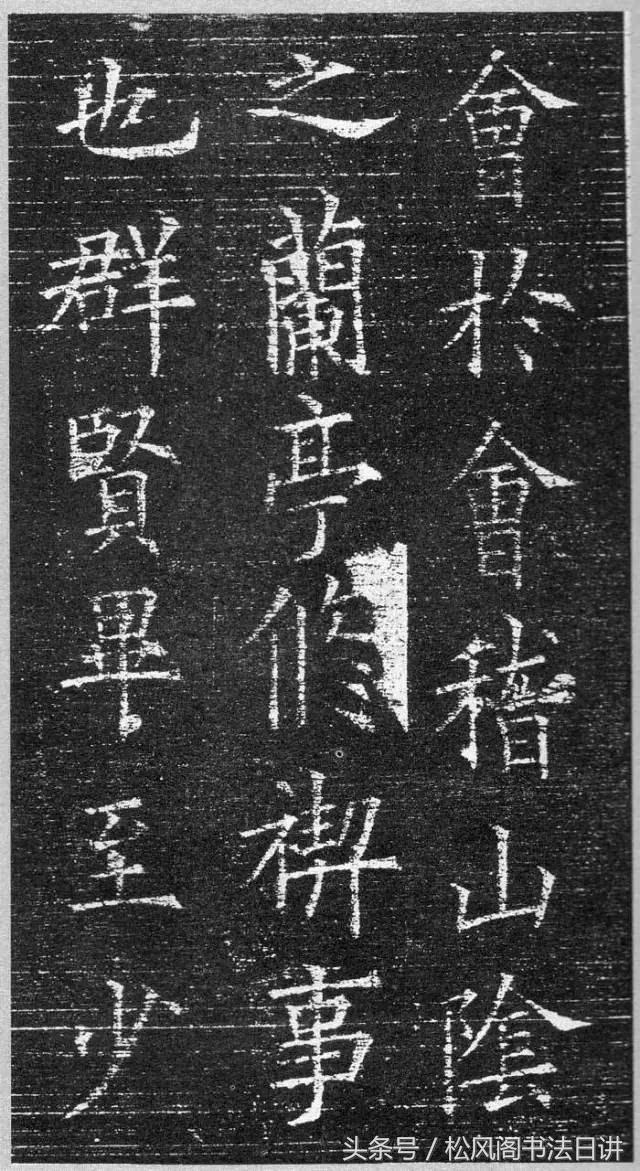 會於會稽山陰
之蘭亭脩禊事
也群賢畢至少
头条号 / 松风阁书法日讲